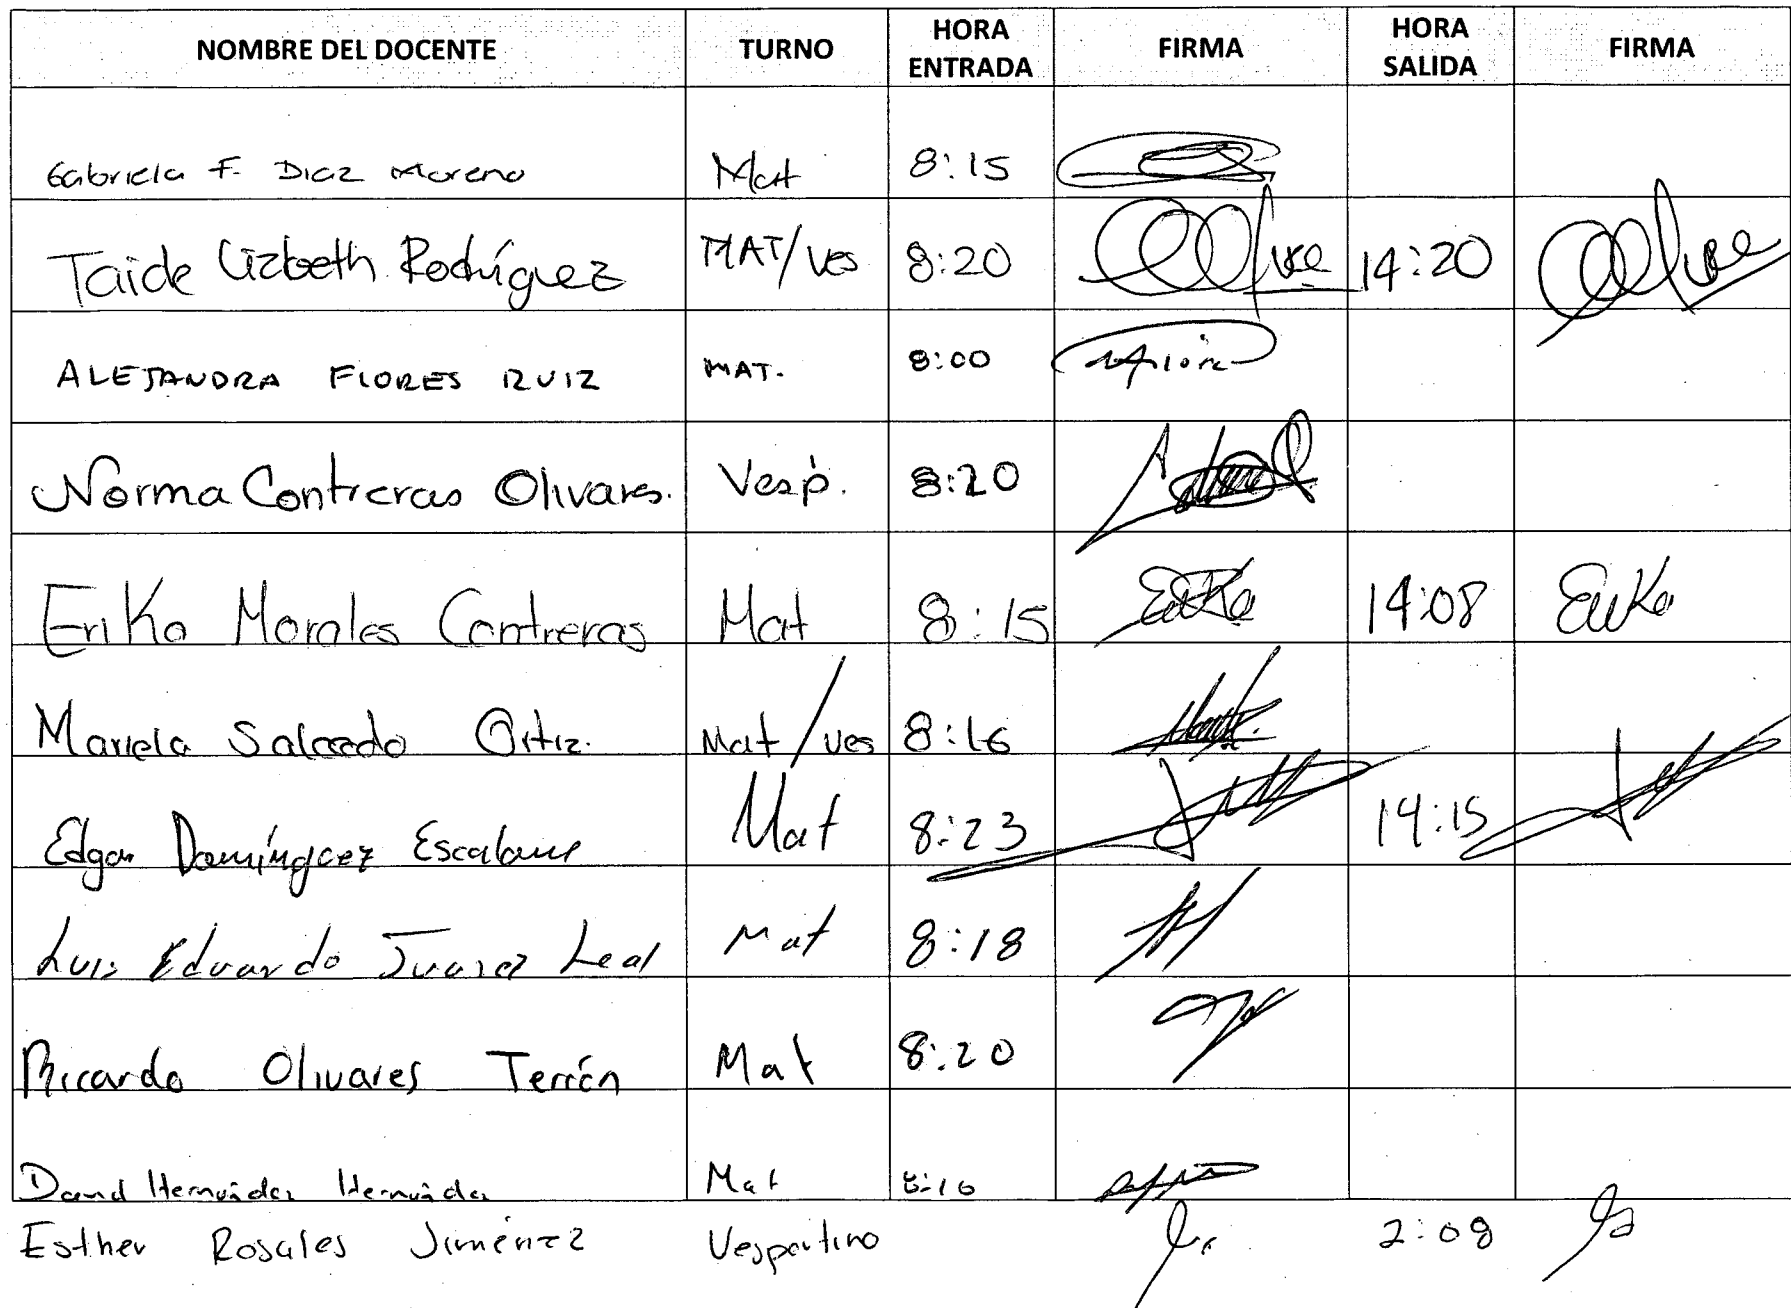 NOMBRE DEL DOCENTE TURNO HORA ENTRADA FIRMA HORA SALIDA FIRMA
Gabriela F. Diaz Moreno Mat 8:15
Taide Lizbeth Rodríguez MAT/Ves 8:20 14:20
ALEJANDRA FLORES RUIZ MAT. 8:00
Norma Contreras Olivares. Vesp. 8:20
Erika Morales Contreras Mat 8:15 Erika 14:08 Erika
Mariela Salcedo Ortiz. Mat/ves 8:16
Edgar Domínguez Escalante Mat 8:23 14:15
Luis Eduardo Juarez Leal Mat 8:18
Ricardo Olivares Terrón Mat 8:20
David Hernández Hernández Mat 8:16
Esther Rosales Jiménez Vespertino 2:08